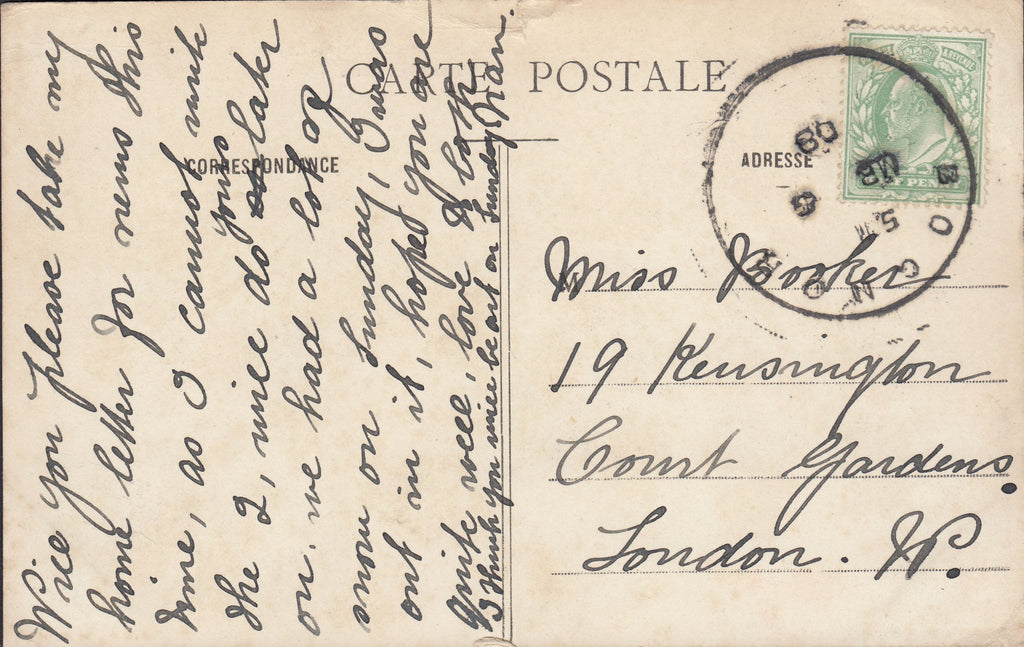 CARTE POSTALE
CORRESPONDANCE
ADRESSE
Will you please take my
home letter for news this
time, as I cannot write
the 2, will do yours later
on. we had a lot of
snow on Sunday, I was
out in it, hoped you are
quite well, love to look
I think you will be out on Sunday
Miss Booker
19 Kensington
Court Gardens.
London. W.
08
5